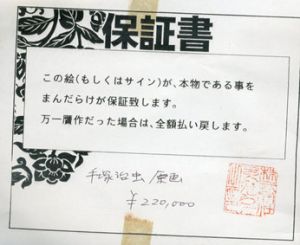 保証書
この絵(もしくはサイン)が、本物である事を
まんだらけが保証致します。
万一贋作だった場合は、全額払い戻します。
手塚治虫 原画
¥220,000